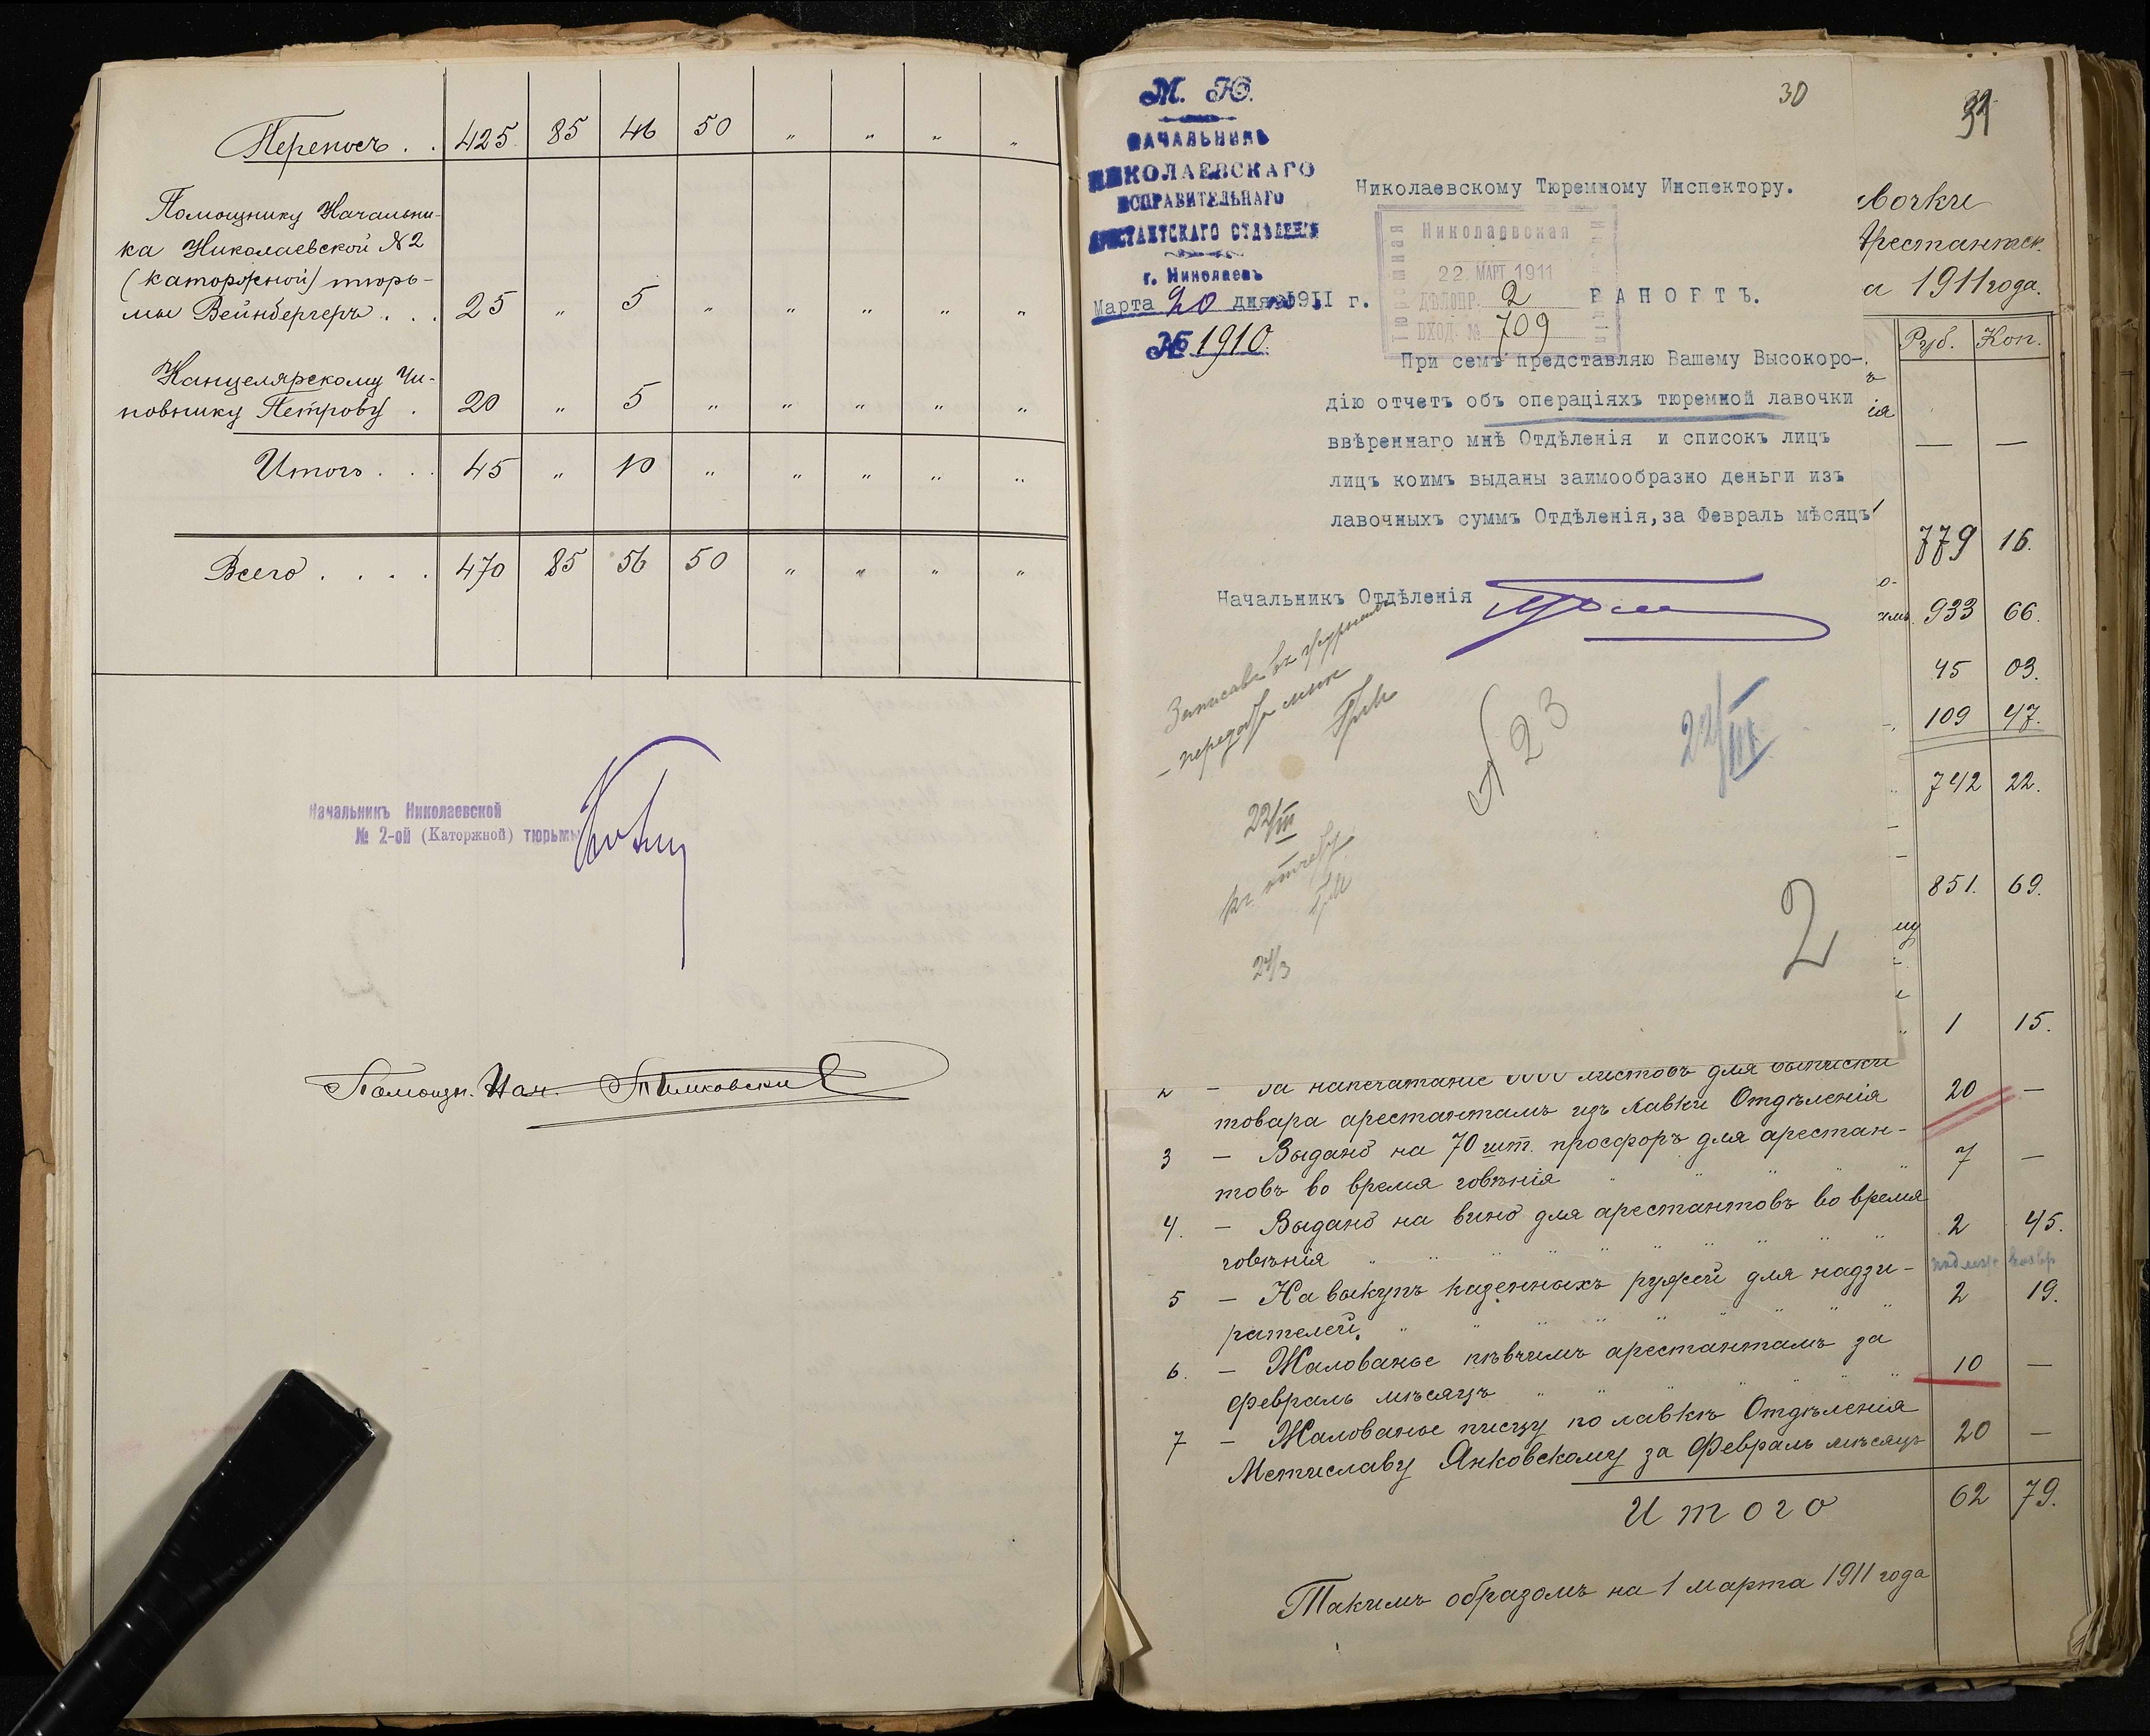 Переносъ . . 425 85 46 50 " " " "
Помощнику Начальни-
ка Николаевской №2
(каторжной) тюрь-
мы Вейнбергеръ . . . 25 " 5 " " " " "
Канцелярскому Чи-
новнику Петрову . 20 " 5 " " " " "
Итого . . . 45 " 10 " " " " "
Всего . . . . 470 85 56 50 " " " "
Начальникъ Николаевской
№ 2-ой (Каторжной) тюрьмы
Помощн. Нач.
30
М. Ю.
НАЧАЛЬНИКЪ
НИКОЛАЕВСКАГО
ИСПРАВИТЕЛЬНАГО
АРЕСТАНТСКАГО ОТДѢЛЕНІЯ
г. Николаевъ
Марта 20 дня 1911 г.
№ 1910.
Николаевскому Тюремному Инспектору.
Николаевская
Тюремная
22. МАРТ 1911
ДѢЛОПР. 2
ВХОД. № 709
РАПОРТЪ.
При семъ представляю Вашему Высокоро-
дію отчетъ объ операціяхъ тюремной лавочки
ввѣреннаго мнѣ Отдѣленія и списокъ лицъ
лицъ коимъ выданы заимообразно деньги изъ
лавочныхъ суммъ Отдѣленія,за Февраль мѣсяцъ
Начальникъ Отдѣленія
№ 23
22/III
22/III
къ отчету
24/3
2
31
лавочки
Арестантск.
а 1911 года.
Руб. Коп.
— —
779 16.
933 66.
45 03.
109 47.
742 22.
851. 69.
1 15.
2 — За напечатаніе листовъ для выписки
товара арестантамъ изъ лавки Отдѣленія 20 —
3 — Выдано на 70 шт. просфоръ для арестан-
товъ во время говѣнія " " " 7 —
4. — Выдано на вино для арестантовъ во время
говѣнія " " " " " " 2 45.
5 — На выкупъ казенныхъ ружей для надзи-
рателей. " " " " " " 2 19.
6. — Жалованье пѣвчимъ арестантамъ за
Февраль мѣсяцъ " " " " " 10 —
7 — Жалованье писцу по лавкѣ Отдѣленія
Мстиславу Янковскому за Февраль мѣсяцъ 20 —
Итого 62 79.
Такимъ образомъ на 1 марта 1911 года